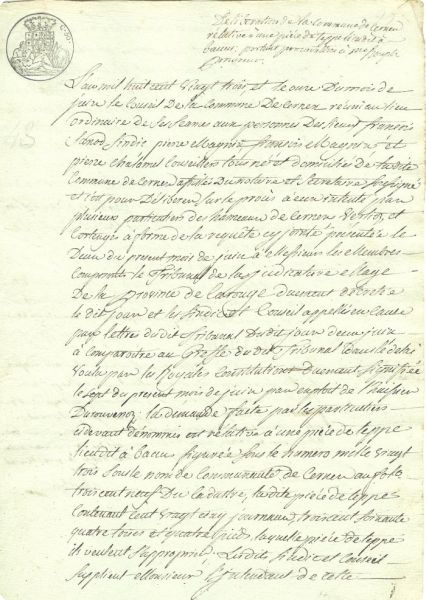 Délibération de la Commune de Cernex
relative à une pièce de teppe lieudit à
bacus portant procuration à me Joseph
L'an mil huit cent vingt trois et le onze du mois de
juin le Conseil de la Commune de Cernex réuni au lieu
ordinaire de ses séances aux personnes des sieurs françois
Sindic pierre Magnin françois Magnin et
pierre Chatenel Conseillers tous nés et domiciliés de ladite
Commune de Cernex assistés du notaire et Secretaire soussigné
et c'est pour Déliberer sur le procès à eux intenté par
plusieurs particuliers des hameaux de Cernex Verlioz et
à forme de la requête cy jointe présentée le
Deux du present mois de juin à Messieurs les Membres
Composant le Tribunal de la judicature Maye
De la province de Carouge duement décrétée
le dit jour et les sindic et Conseil appellés en cause
par lettre du dit Tribunal du dit jour deux juin
à Comparoitre au Greffe du dit Tribunal dans le délai
voulu par les Royales Constitutions duement signifiée
le sept du present mois de juin par exploit de l'huissier
la demande faite par les particuliers
cidevant dénommés est relative à une pièce de teppe
lieudit à bacus figurée sous le numero mille vingt
trois sous le nom de Communauté de Cernex au folio
trois cent neuf Du Cadastre, la dite pièce de teppes
Contenant Cent vingt cinq journaux trois cent soixante
quatre toises et quatre pieds, laquelle pièce de teppe
ils veulent s'approprier. Lesdits Sindic et Conseil
Supplient Monsieur l'Intendant de cette